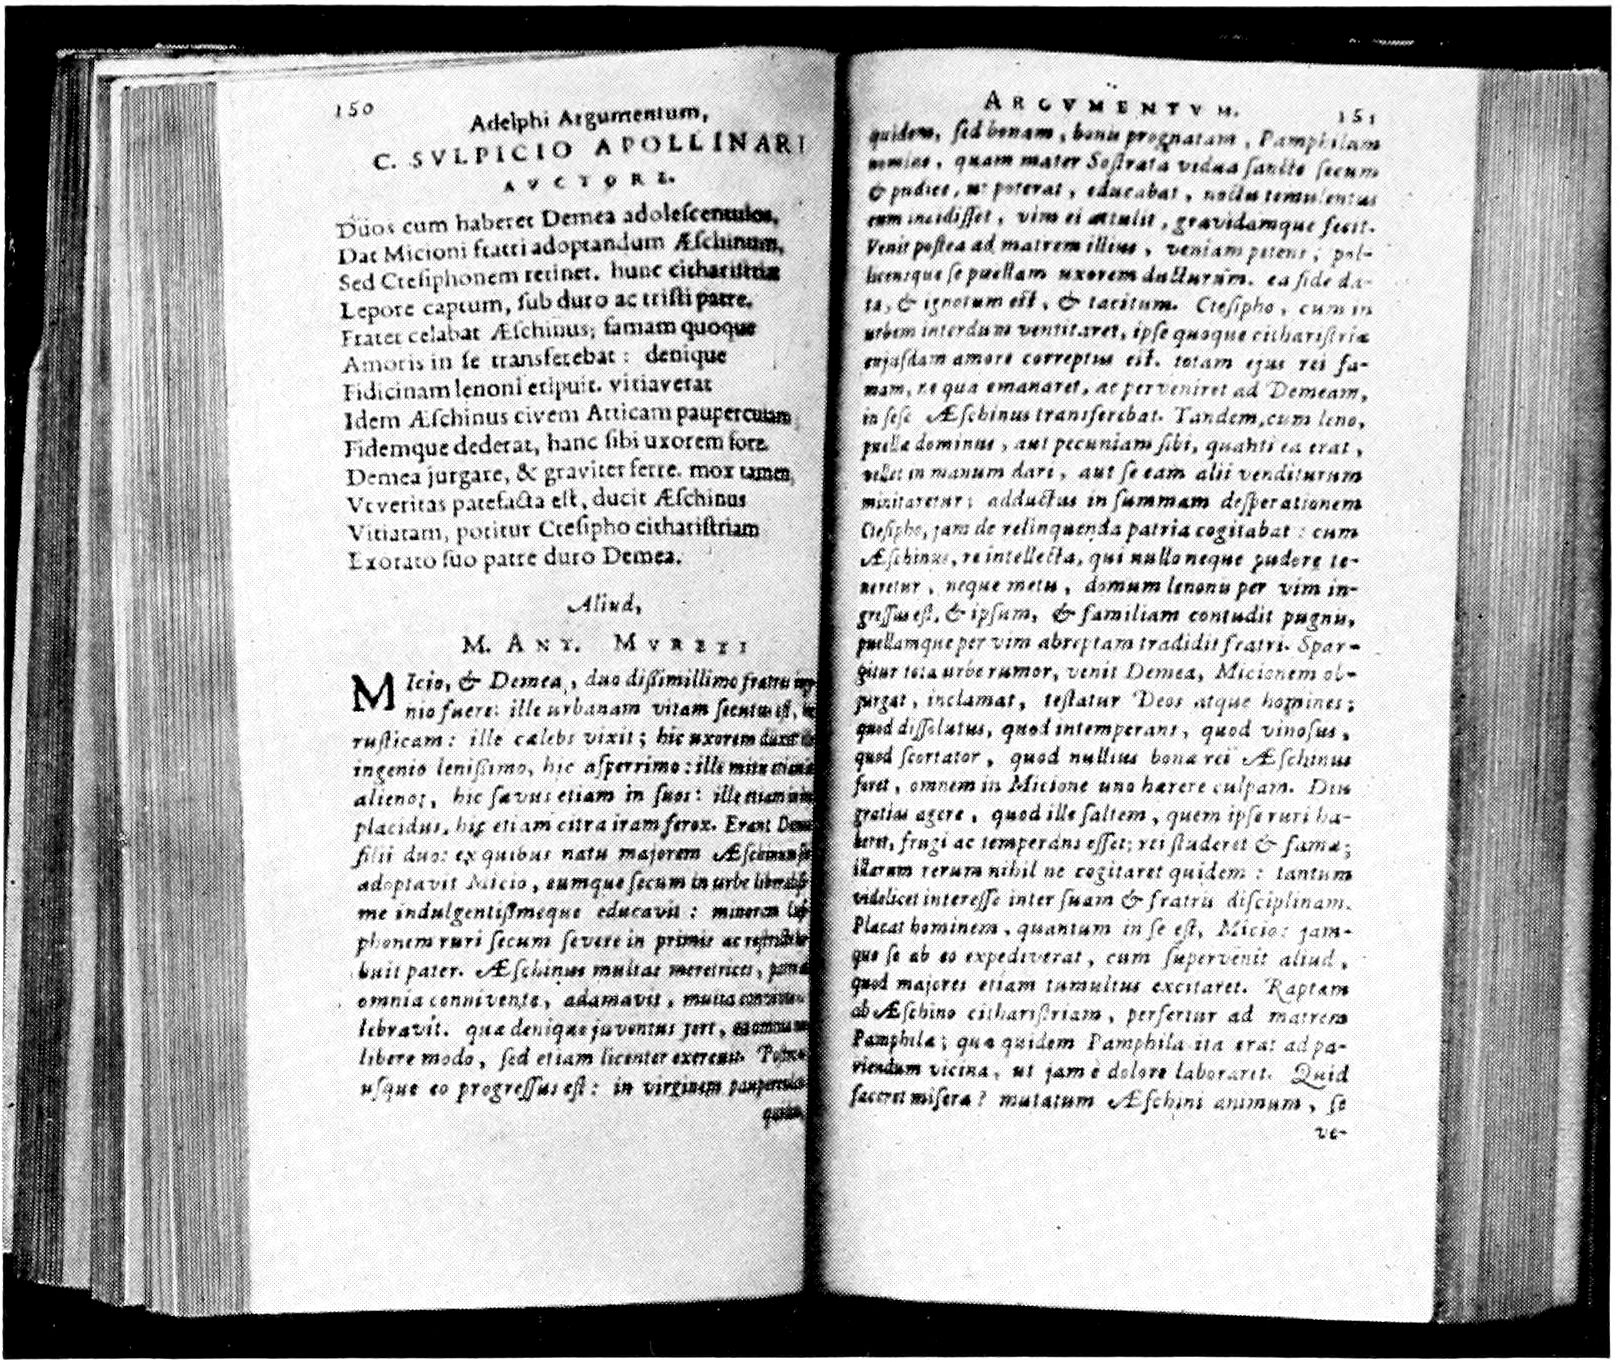 150
Adelphi Argumentum,
C. SVLPICIO APOLLINARI
AVCTORE.
Duos cum haberet Demea adoleſcentulos,
Dat Micioni fratri adoptandum Æſchinum,
Sed Cteſiphonem retinet. hunc cithariſtriæ
Lepore captum, ſub duro ac triſti patre.
Frater celabat Æſchinus; famam quoque
Amoris in ſe transferebat: denique
Fidicinam lenoni eripuit. vitiaverat
Idem Æſchinus civem Atticam pauperculam,
Fidemque dederat, hanc ſibi uxorem fore.
Demea jurgare, & graviter ferre. mox tamen,
Vt veritas patefacta eſt, ducit Æſchinus
Vitiatam, potitur Cteſipho cithariſtriam
Exorato ſuo patre duro Demea.
Aliud,
M. ANT. MVRETI
MIcio, & Demea, duo diſſimillimo fratres
nio fuere: ille urbanam vitam ſecutus eſt,
ruſticam: ille cælebs vixit; hic uxorem duxit
ingenio leniſſimo, hic aſperrimo: ille mitis
alienos, hic ſævus etiam in ſuos: ille
placidus, hic etiam citra iram ferox. Erant
filii duo: ex quibus natu majorem
adoptavit Micio, eumque ſecum in urbe
me indulgentiſſimeque educavit: minorem
phonem ruri ſecum ſevere in primis ac
buit pater. Æſchinus multas meretrices,
omnia connivente, adamavit, multa
lebravit. quæ denique juventus fert,
libere modo, ſed etiam licenter exercuit.
uſque eo progreſſus eſt: in virginem
ARGVMENTVM. 151
quidem, ſed bonam, bonis prognatam, Pamphilam
nomine, quam mater Soſtrata vidua ſancte ſecum
& pudice, ut poterat, educabat, noctu temulentus
cum incidiſſet, vim ei attulit, gravidamque fecit.
Venit poſtea ad matrem illius, veniam petens; pol-
licensque ſe puellam uxorem ducturum. ea fide da-
ta, & ignotum eſt, & tacitum. Cteſipho, cum in
urbem interdum ventitaret, ipſe quoque cithariſtriæ
cujuſdam amore correptus eſt. totam ejus rei fa-
mam, ne qua emanaret, ac perveniret ad Demeam,
in ſeſe Æſchinus transferebat. Tandem, cum leno,
puellæ dominus, aut pecuniam ſibi, quanti ea erat,
vellet in manum dari, aut ſe eam alii venditurum
minitaretur; adductus in ſummam deſperationem
Cteſipho, jam de relinquenda patria cogitabat: cum
Æſchinus, re intellecta, qui nullo neque pudore te-
neretur, neque metu, domum lenonis per vim in-
greſſus eſt, & ipſum, & familiam contudit pugnis,
puellamque per vim abreptam tradidit fratri. Spar-
gitur tota urbe rumor, venit Demea, Micionem ob-
jurgat, inclamat, teſtatur Deos atque homines;
quod diſſolutus, quod intemperans, quod vinoſus,
quod ſcortator, quod nullius bonæ rei Æſchinus
foret, omnem in Micione uno hærere culpam. Diis
gratias agere, quod ille ſaltem, quem ipſe ruri ha-
beret, frugi ac temperans eſſet; rei ſtuderet & famæ;
iſtarum rerum nihil ne cogitaret quidem: tantum
videlicet intereſſe inter ſuam & fratris diſciplinam.
Placat hominem, quantum in ſe eſt, Micio: jam-
que ſe ab eo expediverat, cum ſupervenit aliud,
quod majores etiam tumultus excitaret. Raptam
ab Æſchino cithariſtriam, perfertur ad matrem
Pamphilæ; quæ quidem Pamphila ita erat ad pa-
riendum vicina, ut jam è dolore laboraret. Quid
faceret miſera? mutatum Æſchini animum, ſe
ve-